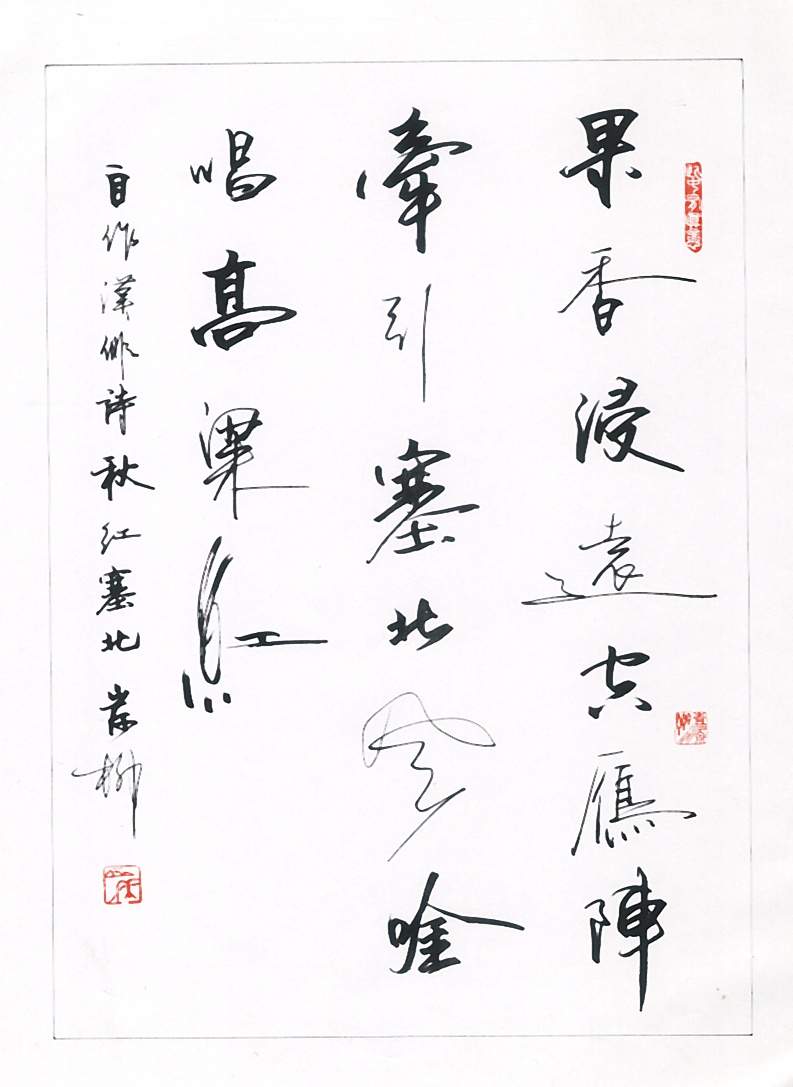 果香浸遠空鴈陣
牽引塞北風唫
唱高粱紅
自作漢俳詩秋紅塞北 岸柳